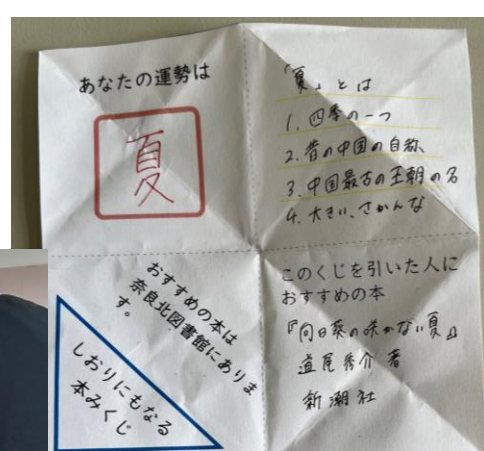 あなたの運勢は
夏
「夏」とは
1. 四季の一つ
2. 昔の中国の自称
3. 中国最古の王朝の名
4. 大きい、さかんな
おすすめの本は
奈良北図書館にありま
す。
しおりにもなる
本みくじ
このくじを引いた人に
おすすめの本
『向日葵の咲かない夏』
道尾秀介 著
新潮社